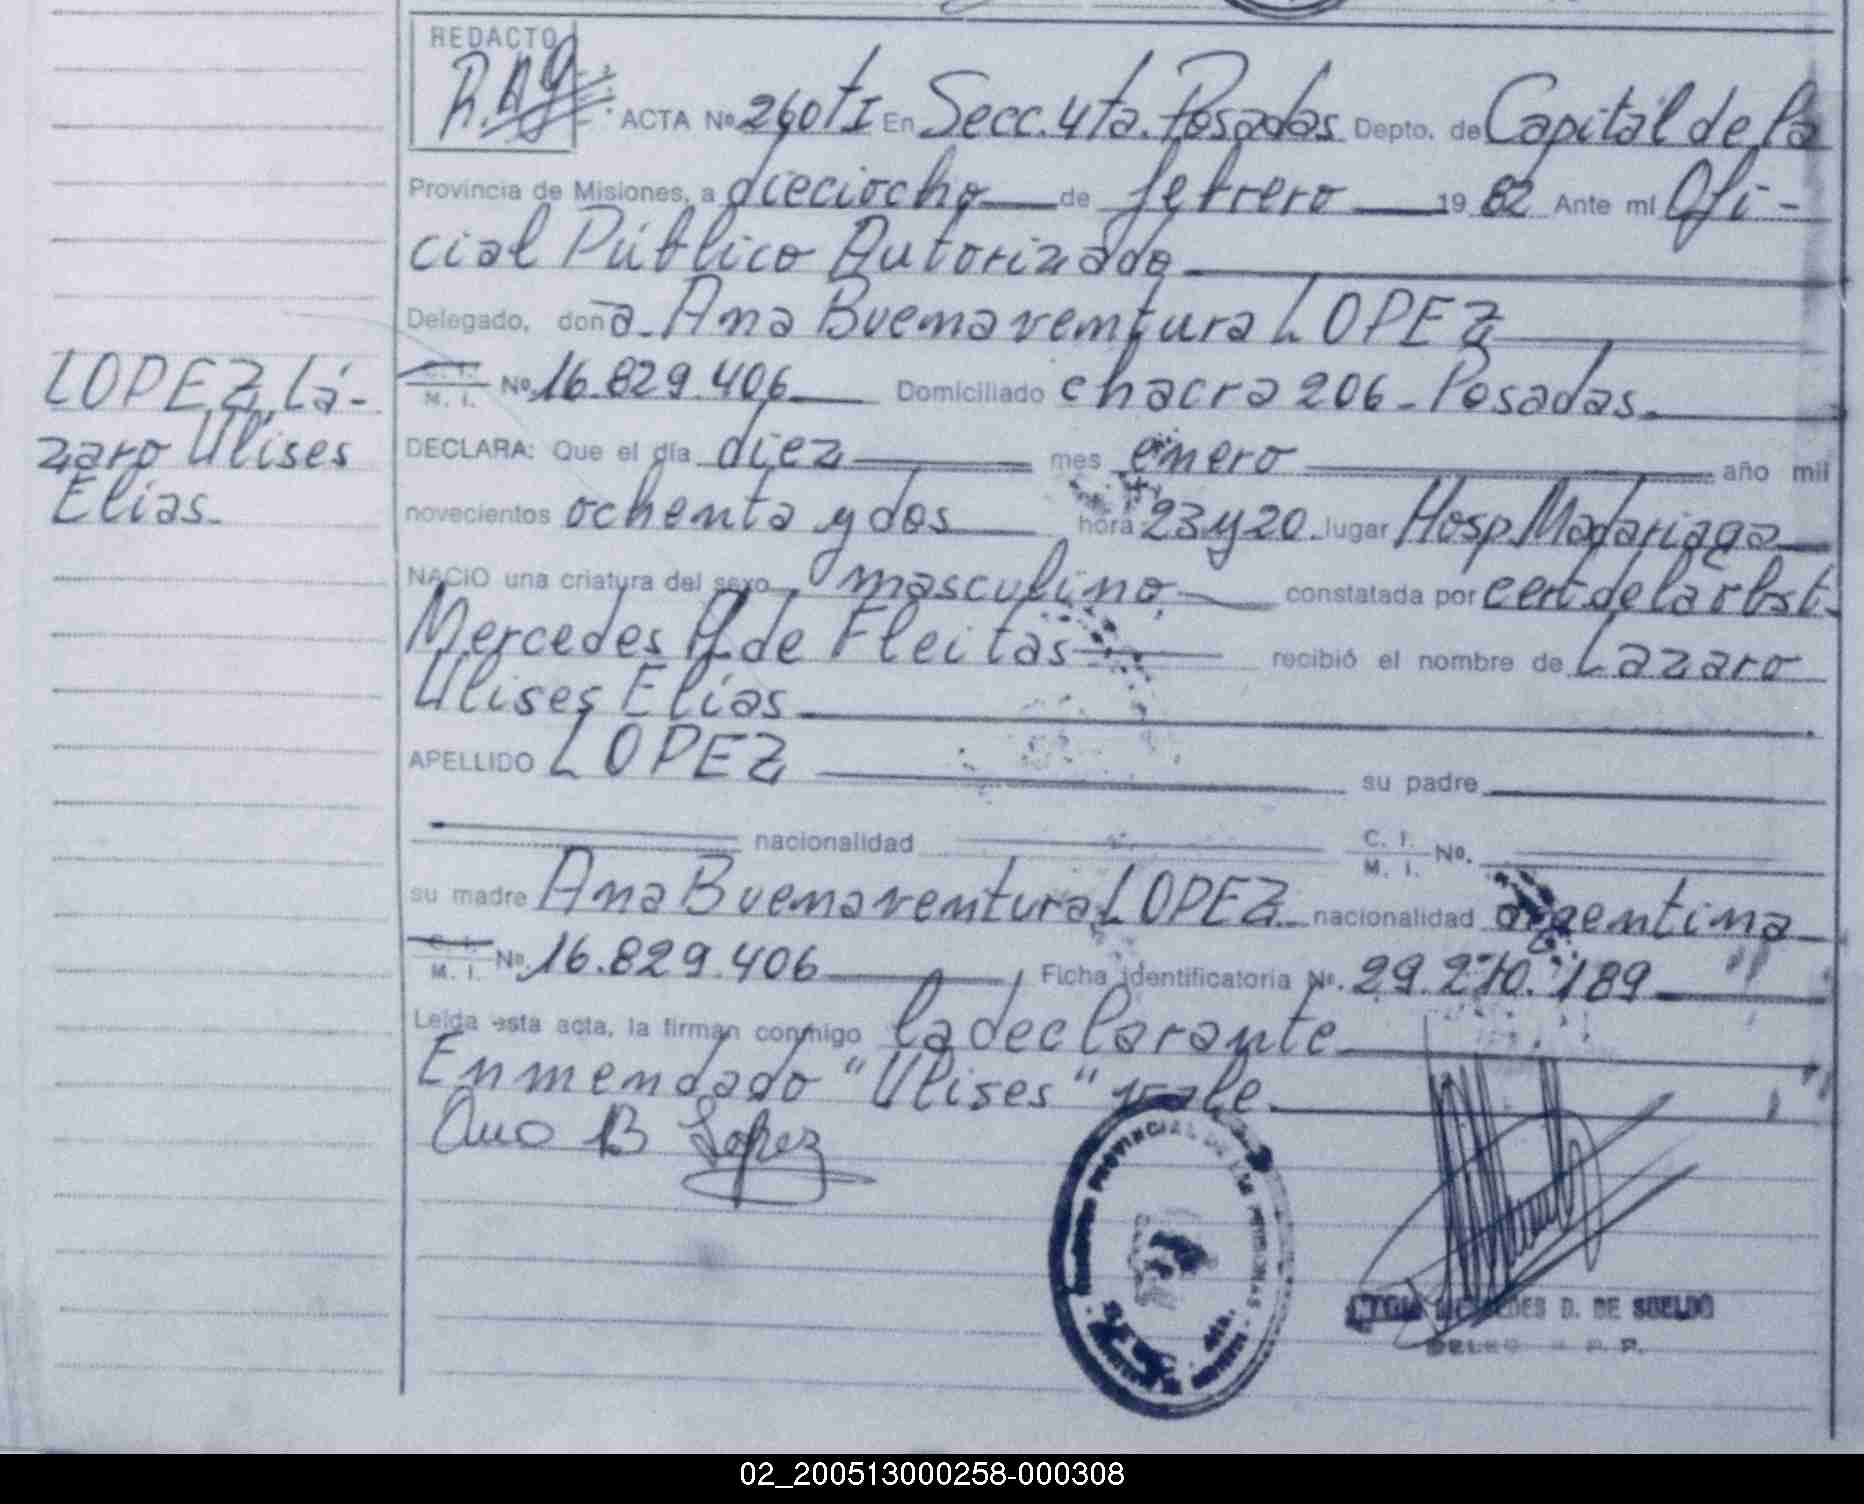 REDACTO
ACTA Nº 260 tI En Secc. 4ta. Posadas Depto. de Capital de la
Provincia de Misiones, a dieciocho de febrero 19 82 Ante mi Ofi-
cial Público Autorizado
Delegado, doña Ana Buenaventura LOPEZ
C. I. M. I. Nº 16.829.406 Domiciliado chacra 206 - Posadas
LOPEZ, Lá-
zaro Ulises
Elias.
DECLARA: Que el día diez mes enero año mil
novecientos ochenta y dos hora 23 y 20 lugar Hosp. Madariaga
NACIO una criatura del sexo masculino constatada por cert. de la obst.
Mercedes de Fleitas recibió el nombre de Lazaro
Ulises Elías
APELLIDO LOPEZ su padre
nacionalidad C. I. M. I. Nº.
su madre Ana Buenaventura LOPEZ nacionalidad argentina
C. I. M. I. Nº 16.829.406 Ficha identificatoria Nº. 29.210.189
Leída esta acta, la firman conmigo la declarante
Enmendado "Ulises" vale.
Ana B Lopez
PROVINCIAL DE LAS PERSONAS
D. DE SUELDO
02_200513000258-000308